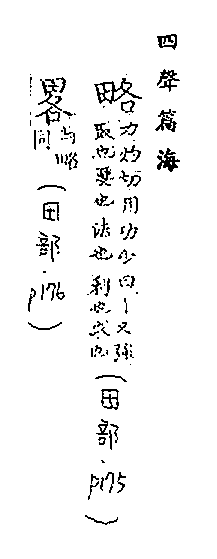 四聲篇海
略力灼切用功少曰〡又強取也要也法也利也求也(田部.p175)
畧与略同(田部.p176)